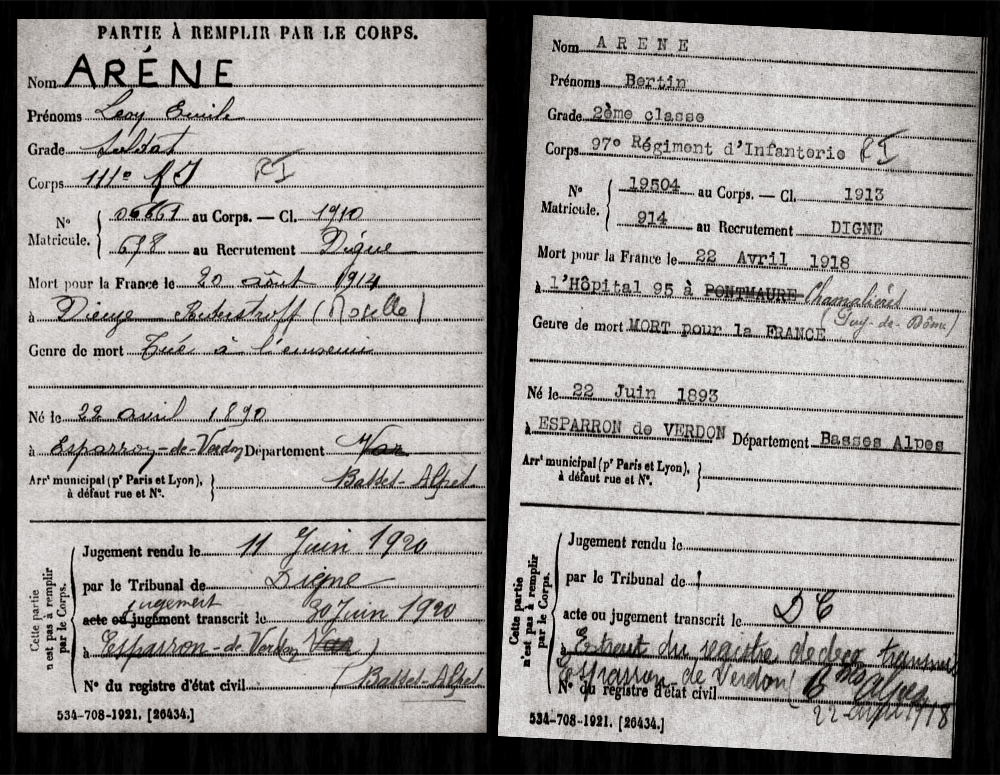 PARTIE À REMPLIR PAR LE CORPS.
Nom ARÉNE
Prénoms Leoy Emile
Grade Soldat
Corps 111e RI RI
N° Matricule. { 06661 au Corps. — Cl. 1910
678 au Recrutement Digne
Mort pour la France le 20 août 1914
à Dieuze (Moselle)
Genre de mort Tué à l'ennemi
Né le 22 avril 1890
à Esparron-de-Verdon Département Var
Arrt municipal (pr Paris et Lyon), à défaut rue et N°. } Basses-Alpes
Cette partie n'est pas à remplir par le Corps.
Jugement rendu le 11 Juin 1920
par le Tribunal de Digne
jugement
acte ou jugement transcrit le 30 Juin 1920
à Esparron-de-Verdon Var
N° du registre d'état civil (Basses-Alpes)
534-708-1921. [26434.]
Nom ARENE
Prénoms Bertin
Grade 2ème classe
Corps 97e Régiment d'Infanterie RI
N° Matricule. { 19504 au Corps. — Cl. 1913
914 au Recrutement DIGNE
Mort pour la France le 22 Avril 1918
à l'Hôpital 95 à PONTMAURE Chamalières
(Puy-de-Dôme)
Genre de mort MORT pour la FRANCE
Né le 22 Juin 1893
à ESPARRON de VERDON Département Basses Alpes
Arrt municipal (pr Paris et Lyon), à défaut rue et N°. }
Cette partie n'est pas à remplir par le Corps.
Jugement rendu le
par le Tribunal de
acte ou jugement transcrit le DC
à Extrait du registre de décès transmis
Esparron de Verdon Bses Alpes
N° du registre d'état civil
22 1918
534-708-1921. [26434.]